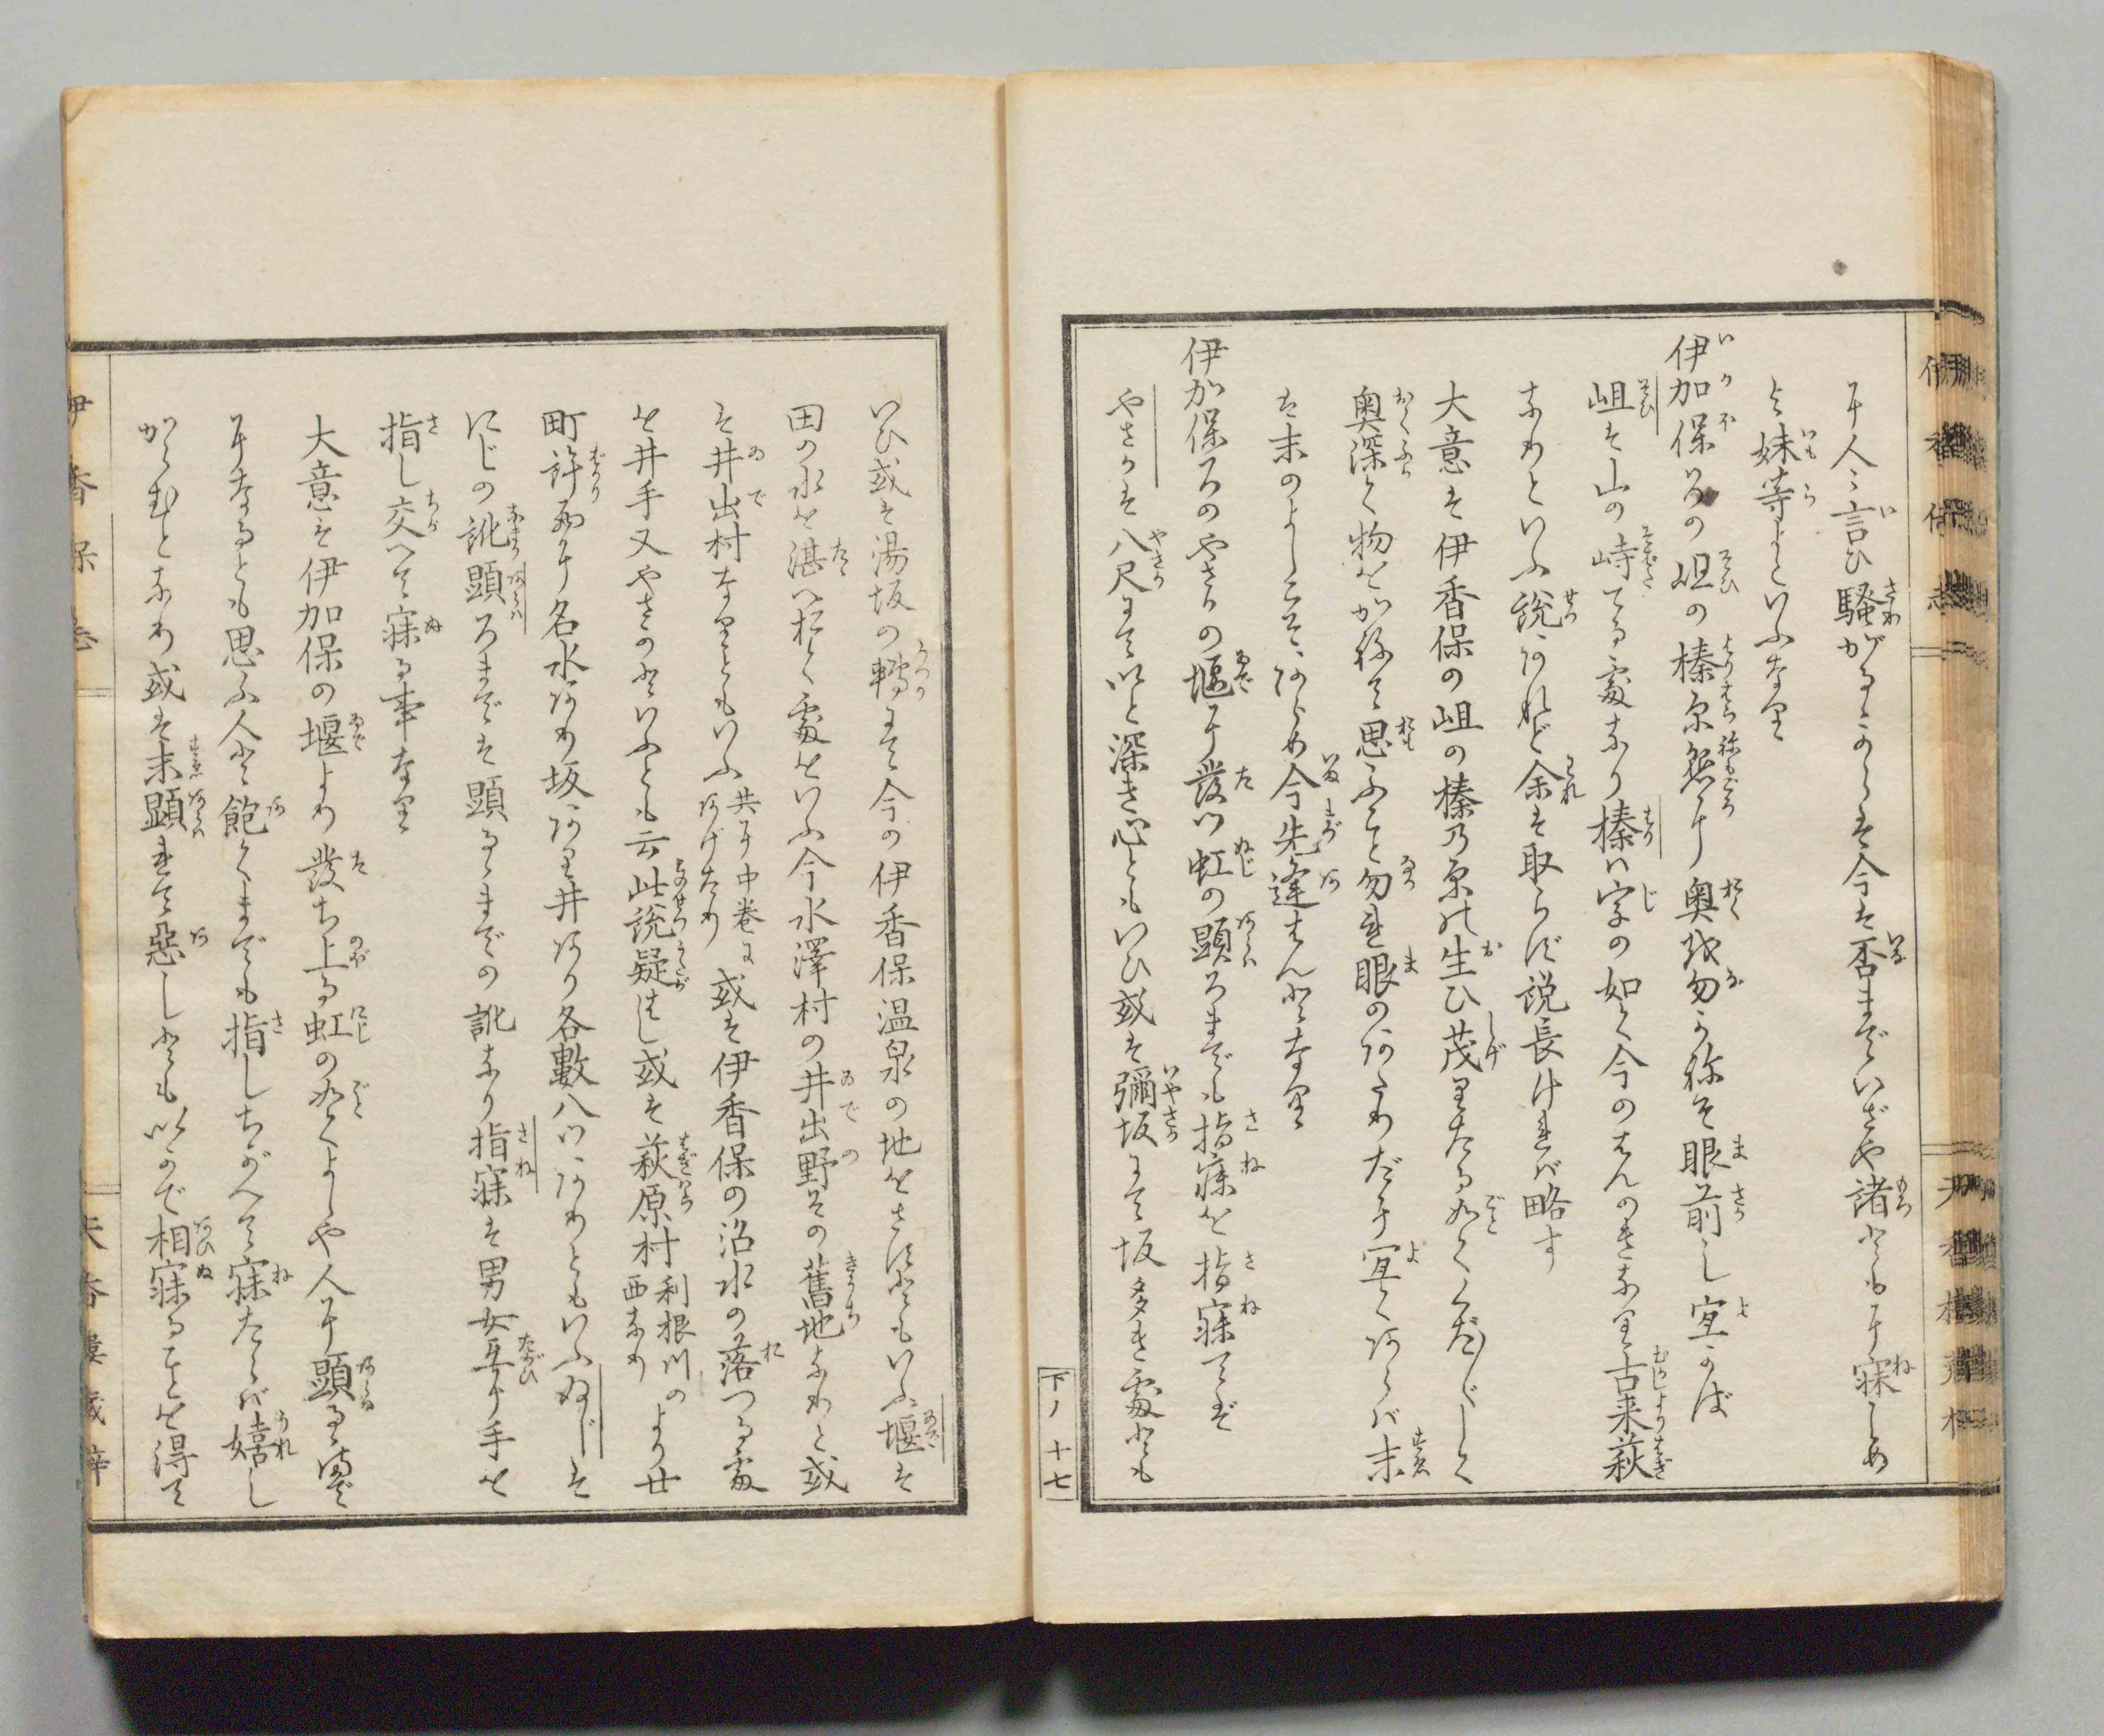 に人に言ひ騒がるゝからは今は否までいざや諸ともに寐しめ
よ妹等よといふなり
伊加保ろの岨の榛原懃に奥越勿かねそ眼前し宜かば
岨は山の峙てる處なり榛は字の如く今のはんのきなり古来萩
なりといふ説あれど余は取らず説長ければ略す
大意は伊香保の岨の榛乃原の生ひ茂りたる如くくだくだしく
奥深く物をかねて思ふこと勿れ眼のあたりだに宜くあらば末
は末のよしこそあらめ今先逢はんとなり
伊加保ろのやさかの堰に發つ虹の顕ろまでも指寐を指寐てば
やさかは八尺にていと深き心ともいひ或は彌坂にて坂多き處とも
下ノ十七
いひ或は湯坂の轉にて今の伊香保温泉の地をさすともいふ堰は
田の水を湛へおく處をいふ今水澤村の井出野はその舊地なりと或
は井出村なりともいふ共に中巻にあげたり或は伊香保の沼水の落つる處
を井手又やさのといふとも云此説疑はし或は萩原村利根川の西なりより廿
町許西に名水あり坂あり井あり各數八つありともいふぬじは
にじの訛顕ろまでは顕るゝまでの訛なり指寐は男女互に手を
指し交へて寐る事なり
大意は伊加保の堰より發ち上る虹の如くよしや人に顕るゝまで
になるとも思ふ人と飽くまでも指しちがへて寐たらば嬉し
からむとなり或は末顕れて惡しとも いかで相寐ることを得て
伊香保志